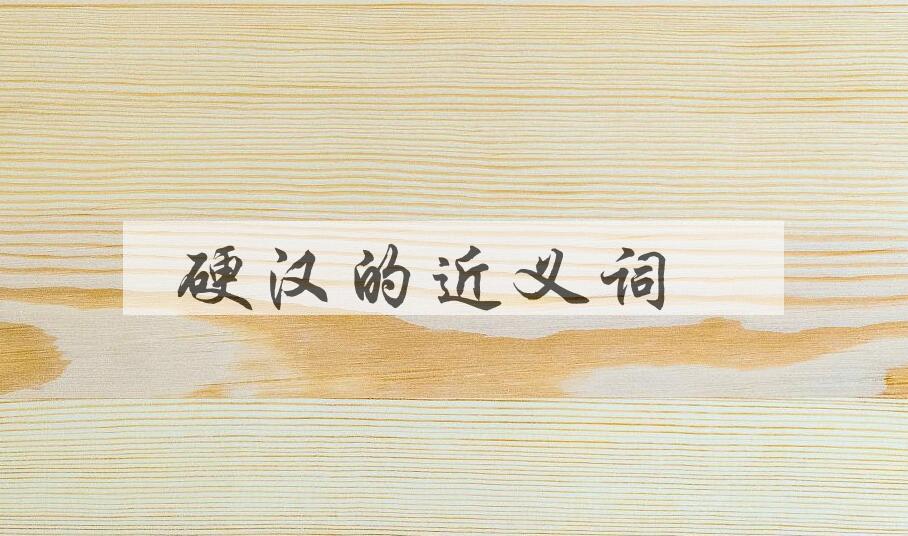 硬汉的近义词